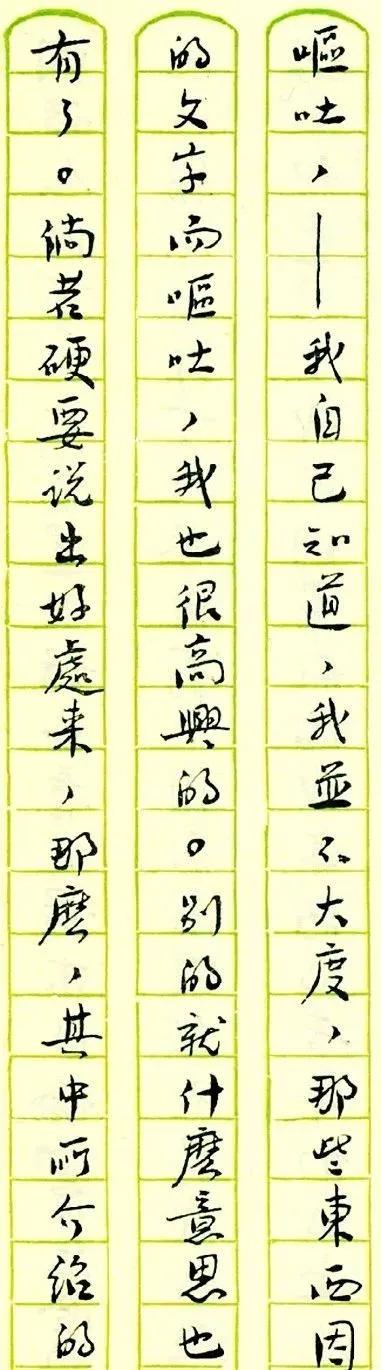 嘔吐，——我自己知道，我並不大度，那些東西因
的文字而嘔吐，我也很高興的。別的就什麽意思也
有了。倘若硬要说出好處来，那麽，其中所介紹的